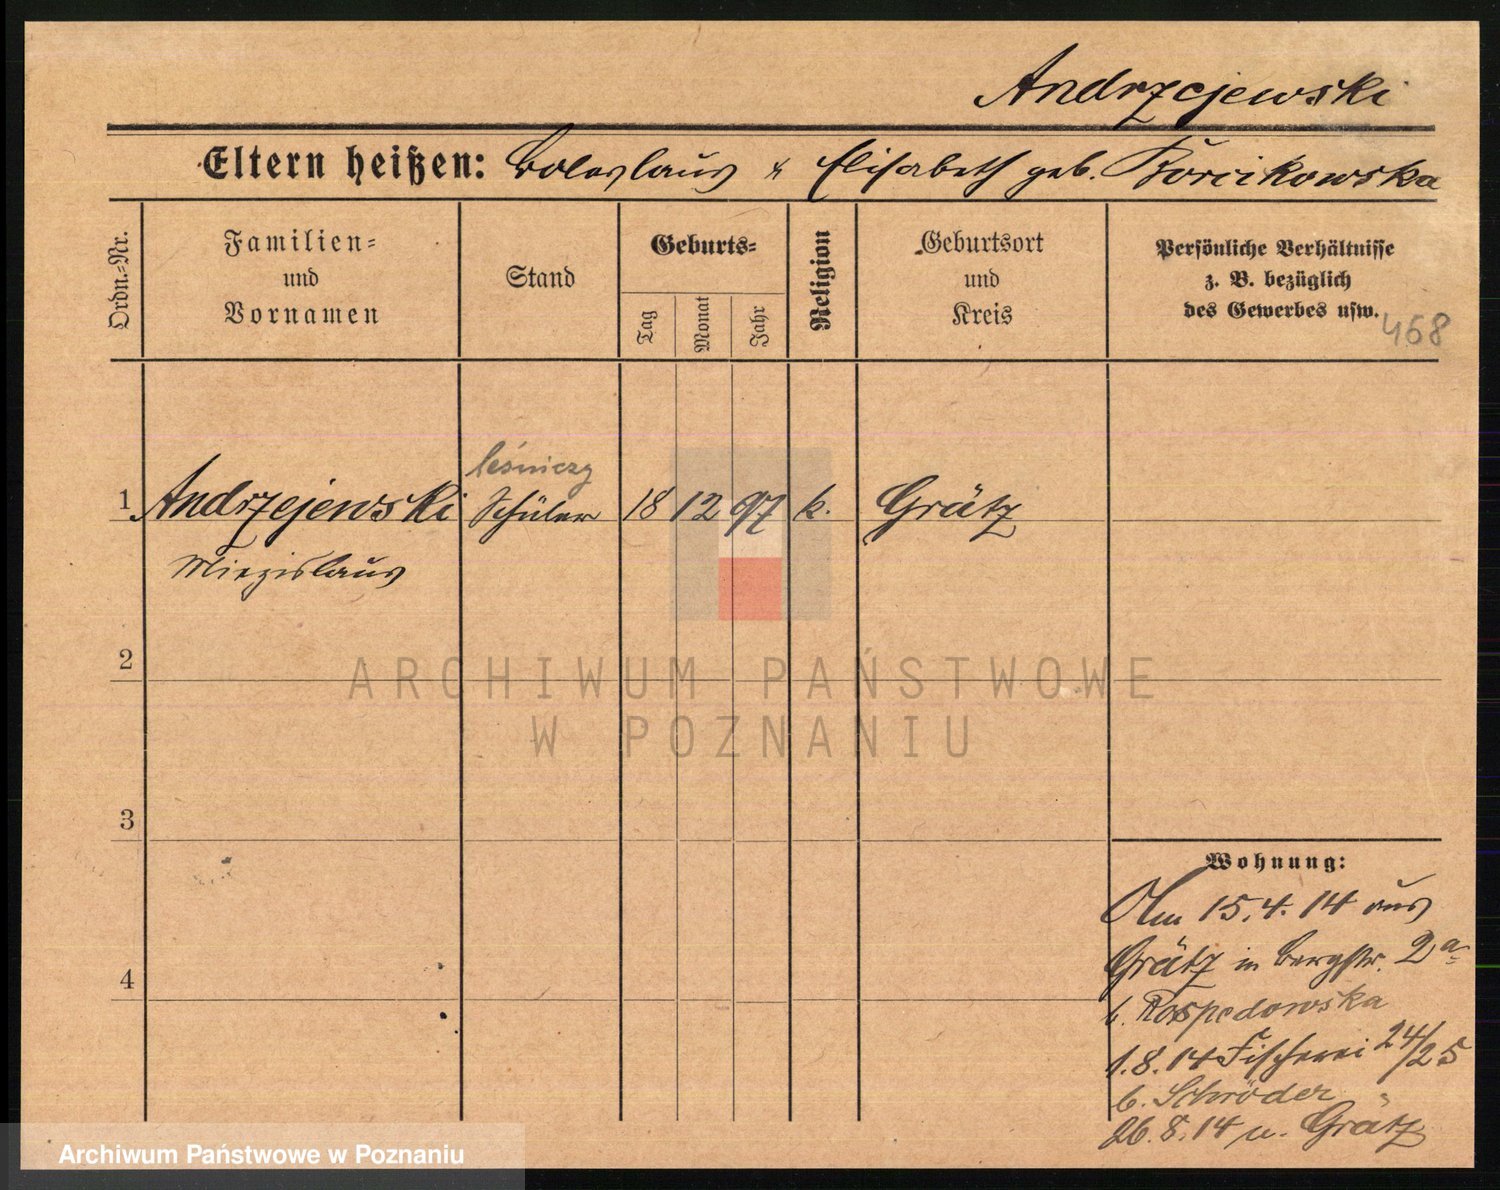 Andrzejewski
Eltern heißen: Boleslaus & Elisabeth geb. Korcikowska
Ordn.=Nr.
Familien=
und
Vornamen
Stand
Geburts=
Tag
Monat
Jahr
Religion
Geburtsort
und
Kreis
Persönliche Verhältnisse
z. B. bezüglich
des Gewerbes usw.
468
leśniczy
1 Andrzejewski Schüler 18 12 97 k. Grätz
Miezislaus
2
ARCHIWUM PAŃSTWOWE
W POZNANIU
3
Wohnung:
Am 15.4.14 aus
4
Grätz in Bergstr. 2a
b. Rospedowska
1.8.14 Fischerei 24/25
b. Schröder
26.8.14 n. Grätz
Archiwum Państwowe w Poznaniu